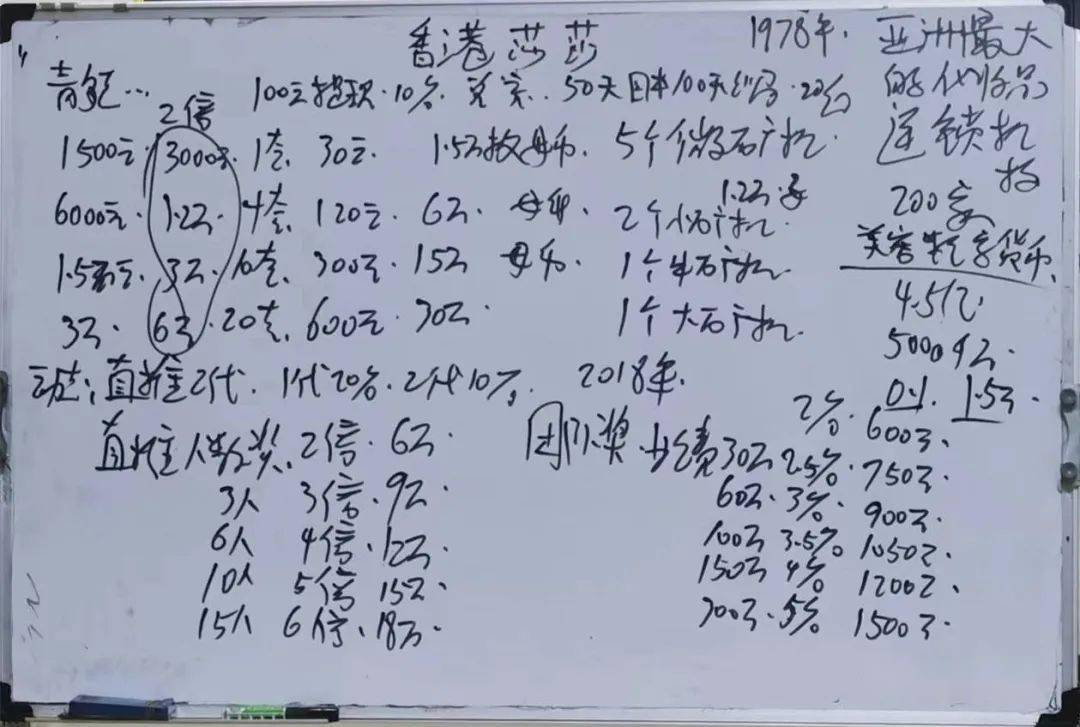 香港莎莎
1978年. 亚洲最大
的化妆品
连锁机
构
200家
美容数字货币
4.5亿.
5000万.
0.1. 1.5万.
100元提现. 10%. 50天回本100天
2倍
1500元. 3000. 1套. 30元. 1.5万枚母币. 5个微石矿机.
1.2万
6000元. 1.2万. 4套. 120元. 6万. 母币. 2个小石矿机.
1.5万元. 3万. 10套. 300元. 15万 母币. 1个中石矿机.
3万. 6万. 20套. 600元. 30万. 1个大石矿机.
动态: 直推2代. 1代20%. 2代10%. 2018年.
直推人数奖. 2倍. 6万.
3人 3倍. 9万.
6人 4倍. 12万.
10人 5倍 15万.
15人 6倍. 18万.
团队奖. 2%. 600万.
30万 2.5%. 750万.
60万. 3%. 900万.
100万 3.5% 1050万.
150万 4% 1200万.
300万. 5% 1500万.